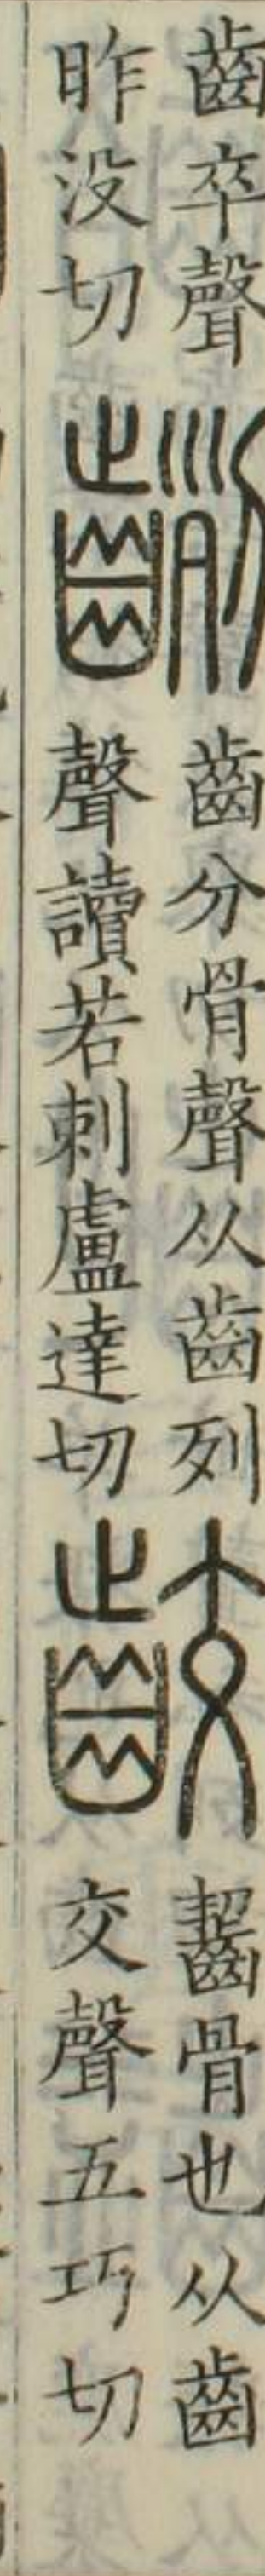 齒卒聲
昨没切
齒分骨聲从齒列
聲讀若刺盧達切
齩
齧骨也从齒
交聲五巧切